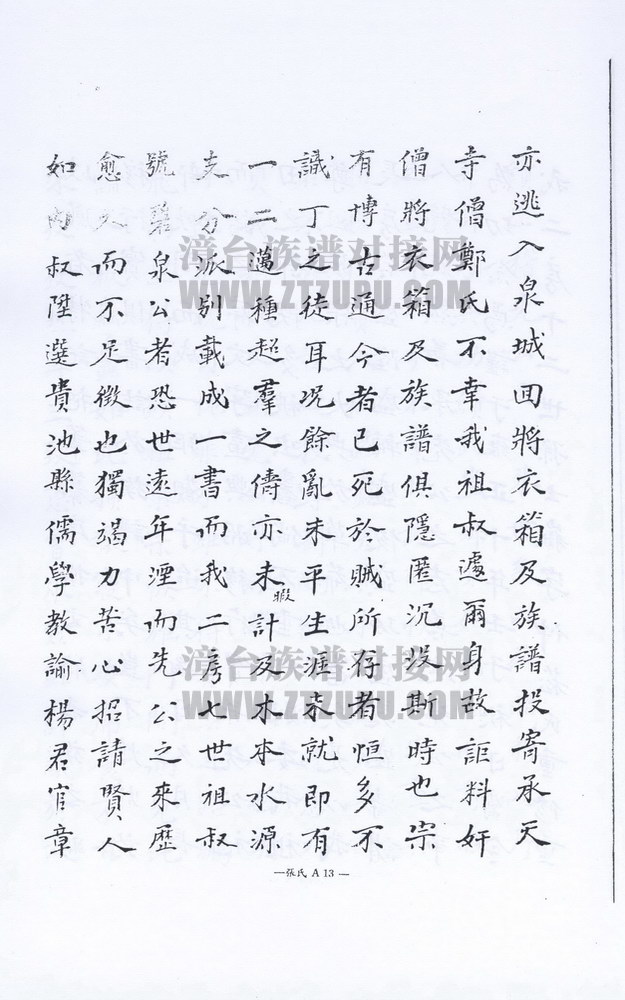 亦逃入泉城回將衣箱及族譜投寄承天
寺僧鄭氏不幸我祖叔遽爾身故詎料奸
僧將衣箱及族譜俱隱匿沉没斯時也宗
有博古通今者已死於贼所存者恒多不
識丁之徒耳况餘亂未平生涯未就即有
一二邁種超羣之儔亦未暇計及木本水源
支分派别載成一書而我二房七世祖叔
號碧泉公者恐世遠年湮而先公之來歷
愈久而不足徵也獨竭力苦心招請賢人
如内叔陞選貴池縣儒學教諭楊君官章
漳台族谱对接网
WWW.ZTZUPU.COM
漳台族谱对接网
WWW.ZTZUPU.COM
—張氏 A 13 —